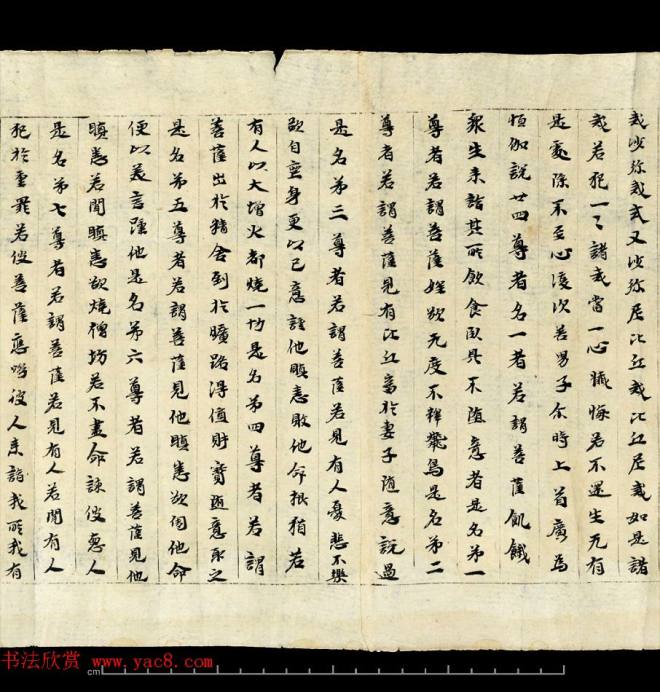 戒沙弥戒式叉沙弥尼比丘戒比丘尼戒如是諸
戒若犯一一諸戒當一心懺悔若不還生无有
是處除不至心復次善男子尒時上首廣為
恒伽說廿四尊者名一者若謂菩薩飢餓
眾生来詣其所飲食卧具不随意者是名弟一
尊者若謂菩薩婬欲无度不擇飛鳥是名弟二
尊者若謂菩薩見有比丘畜於妻子随意說過
是名弟三尊者若謂菩薩若見有人憂悲不樂
欲自喪身更以己意證他瞋恚敗他命根猶若
有人以大增火都燒一切是名弟四尊者若謂
菩薩出於精舍到於曠路得值財寶随意取之
是名弟五尊者若謂菩薩見他瞋恚欲他命
便以美言他是名弟六尊者若謂菩薩見他
瞋恚若聞瞋恚欲燒僧坊若不盡命諫彼惡人
是名弟七尊者若謂菩薩若見有人若聞有人
犯於重罪若彼菩薩應喚彼人来詣我所我有
书法欣赏 www.yac8.com
cm